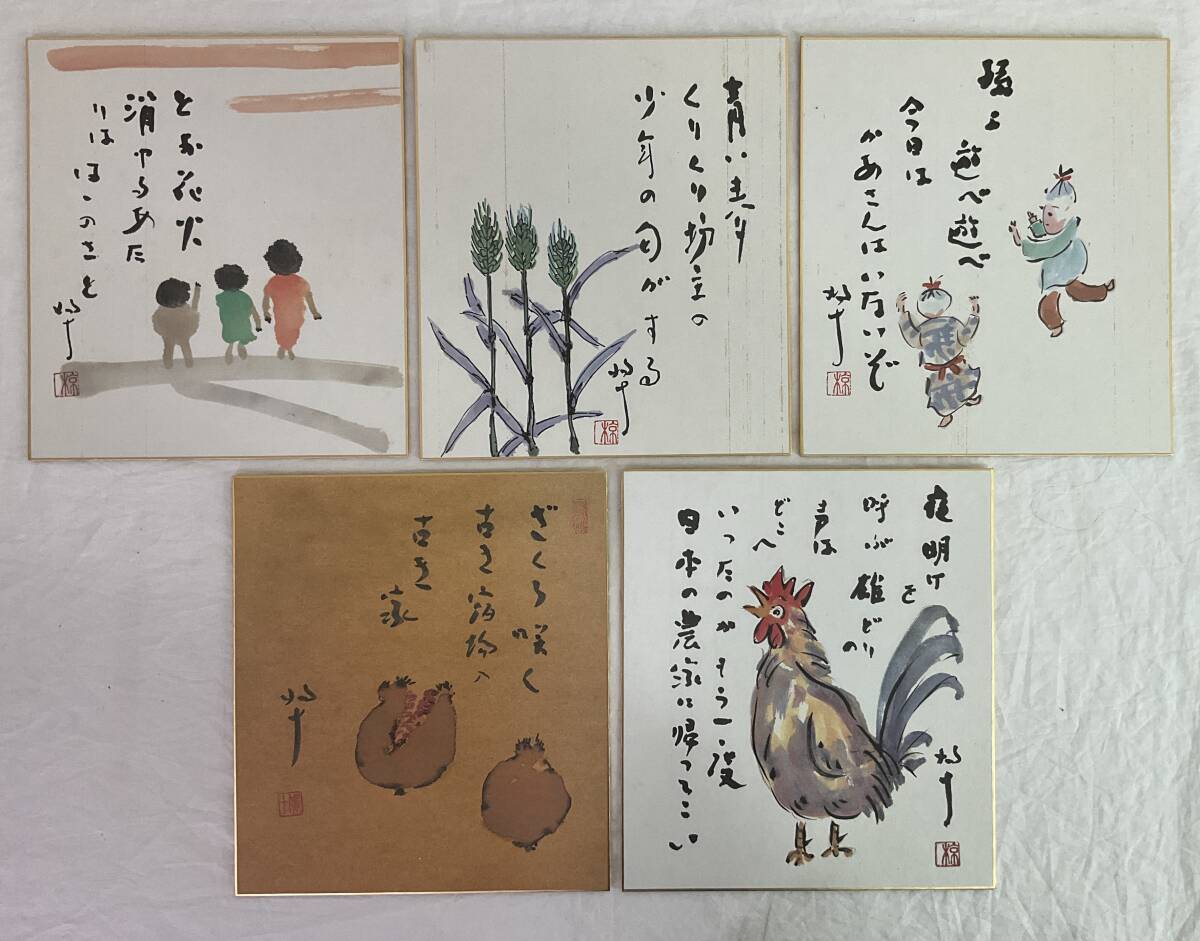 とお花火
消ゆるあた
りは はゝのさと
鳩十
椋
青い麦
くりくり坊主の
少年の匂がする
鳩十
椋
孫よ
遊べ遊べ
今日は
かあさんはいないぞ
鳩十
椋
ざくろ咲く
古き宿場の
古き家
鳩十
夜明けを
呼ぶ雄どりの
声は
どこへ
いったのか もう一度
日本の農家に帰ってこい
鳩十
椋